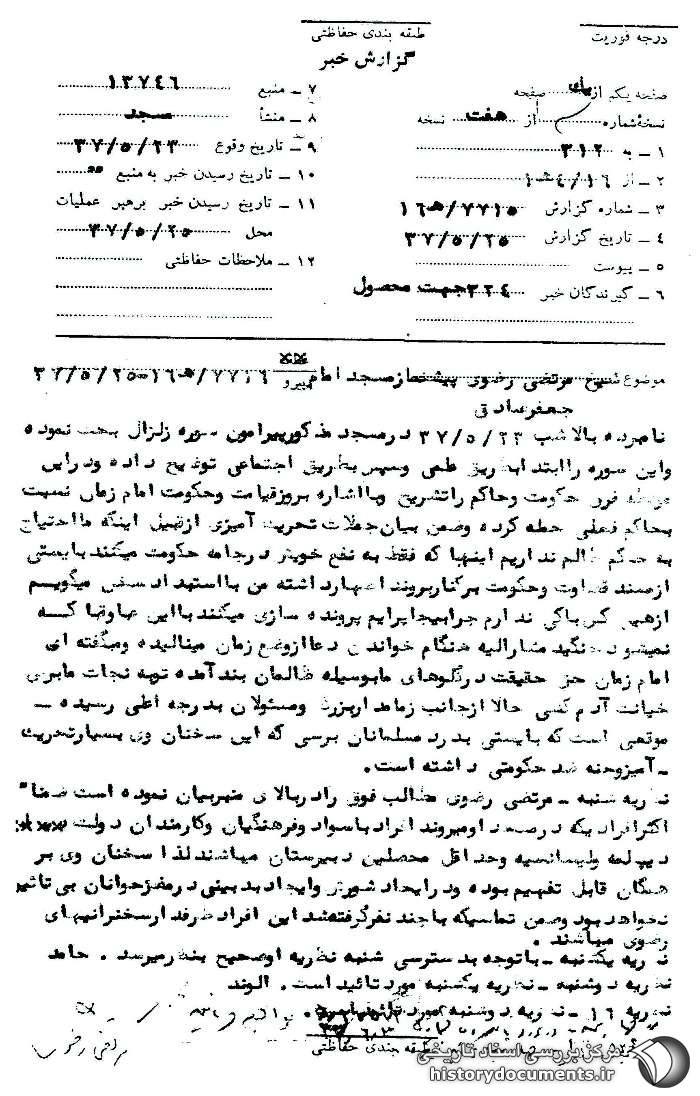 درجه فوریت
طبقه بندی حفاظتی
گزارش خبر
صفحه یکم از صفحه
نسخه شماره از هفت نسخه
۱ – به ۳۱۲
۲ – از ۱۶/۴ه‍۱
۳ – شماره گزارش ۷۷۱۵/ه‍۱۶
۴ – تاریخ گزارش ۳۷/۵/۲۵
۵ – پیوست
۶ – گیرندگان خبر ۳۲۴ جهت محصول
۷ – منبع ۱۳۷۴۶
۸ – منشأ مسجد
۹ – تاریخ وقوع ۳۷/۵/۲۳
۱۰ – تاریخ رسیدن خبر به منبع ""
۱۱ – تاریخ رسیدن خبر برهبر عملیات
محل ۳۷/۵/۲۵
۱۲ – ملاحظات حفاظتی
موضوع شیخ مرتضی رضوی پیشنماز مسجد امام پیرو ۷۷۱۶/ه‍۱۶–۳۷/۵/۲۵
جعفر صادق
نامبرده بالا شب ۳۷/۵/۲۳ در مسجد مذکور پیرامون سوره زلزال بحث نموده
و این سوره را ابتدا بطریق علمی و سپس بطریق اجتماعی توضیح داده و در این
فوق حکومت و حاکم را تشریح و با اشاره بروز قیامت و حکومت امام زمان نسبت
بحاکم فعلی حمله کرده و ضمن بیان جملات تحریک آمیزی از قبیل اینکه ما احتیاج
به حاکم ظالم نداریم اینها که فقط به نفع خویش در جامعه حکومت میکنند بایستی
از مسند قضاوت و حکومت برکنار بروند اظهار داشته من با استبداد سخن میگویم
از هیچ کس باکی ندارم چرا بیجا برایم پرونده سازی میکنند با این
نمیشود جنگید مشارالیه هنگام خواندن دعا از وضع زمان مینالیده و میگفته ای
امام زمان حق و حقیقت در گلوهای ما بوسیله ظالمان بند آمده
خیانت آدم کشی حالا از جانب زمامداران و مسئولان بدرجه اعلی رسیده –
موقعی است که بایستی بدرد مسلمانان برسی که این سخنان وی بسیار تحریک
– آمیز و جنبه ضد حکومتی داشته است .
نظریه شنبه – مرتضی رضوی مطالب فوق را در بالای منبر بیان نموده است ضمنا"
اکثر افرادیکه در مسجد او میروند افراد با سواد و فرهنگیان و کارمندان دولت
دیپلمه و لیسانسیه و حداقل محصلین دبیرستان میباشند لذا سخنان وی بر
همگان قابل تفهیم بوده و در ایجاد شورش و ایجاد بدبینی در مغز جوانان بی تاثیر
نخواهد بود و ضمن تماسیکه با چند نفر گرفته شد این افراد طرفدار سخنرانیهای
رضوی میباشند .
نظریه یکشنبه – با توجه بدسترسی شنبه نظریه او صحیح بنظر میرسد . حامد
نظریه دوشنبه – نظریه یکشنبه مورد تائید است . الوند
نظریه ۱۶ – نظریه دوشنبه مورد تائید
طبقه بندی حفاظتی
مرکز بررسی اسناد تاریخی
historydocuments.ir